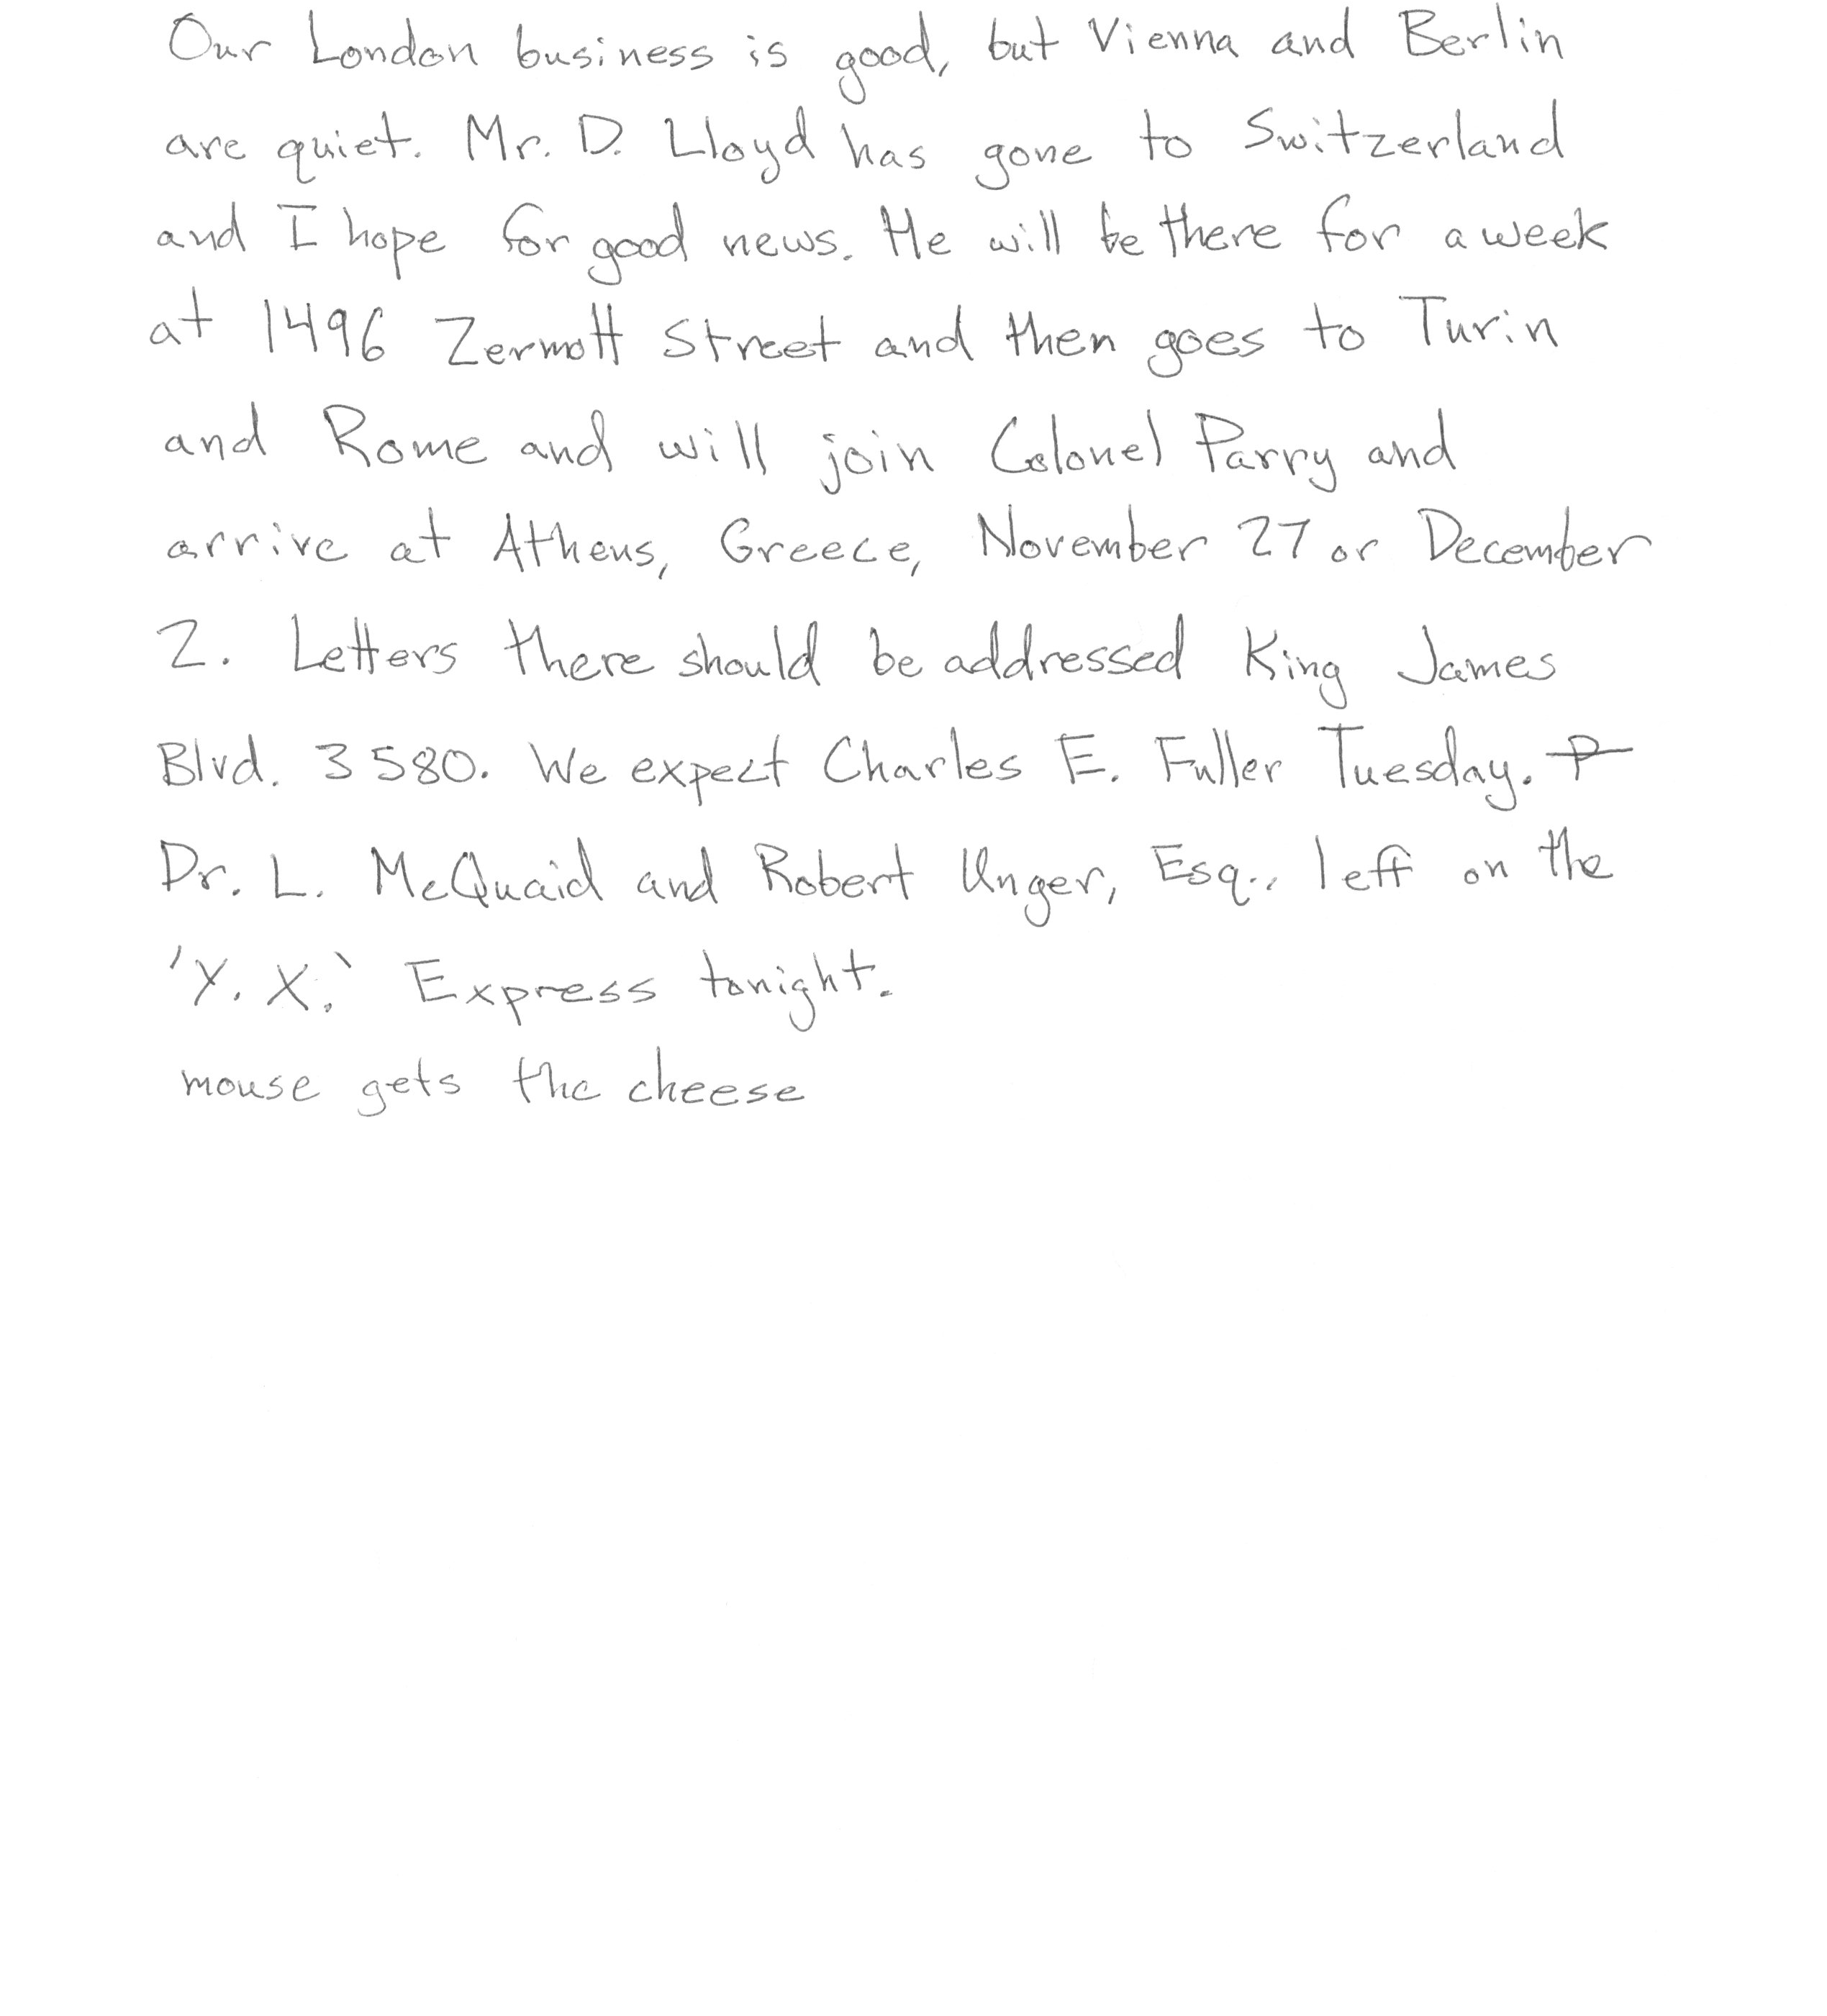 Our London business is good, but Vienna and Berlin
are quiet. Mr. D. Lloyd has gone to Switzerland
and I hope for good news. He will be there for a week
at 1496 Zermott Street and then goes to Turin
and Rome and will join Colonel Parry and
arrive at Athens, Greece, November 27 or December
2. Letters there should be addressed King James
Blvd. 3580. We expect Charles E. Fuller Tuesday.
Dr. L. McQuaid and Robert Unger, Esq., left on the
'Y. X.' Express tonight.
mouse gets the cheese